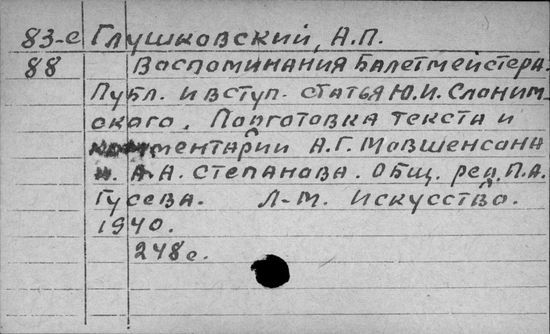 83-е Глушковский, А.П.
88 Воспоминания балетмейстера.
Публ. и вступ. статья Ю.И. Слоним-
ского. Подготовка текста и
комментарии А.Г. Мовшенсона
и. А.А. Степанова. Общ. ред. П.А.
Гусева. Л-М. Искусство.
1940.
248с.